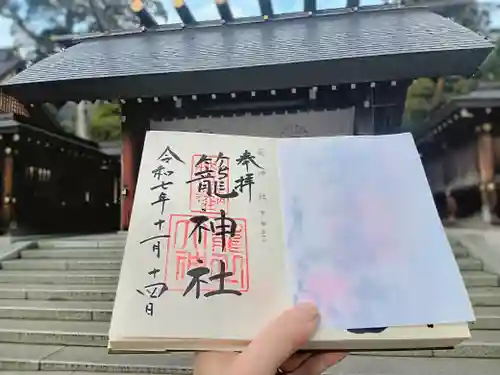 奉拝
籠神社
令和七年十一月十四日